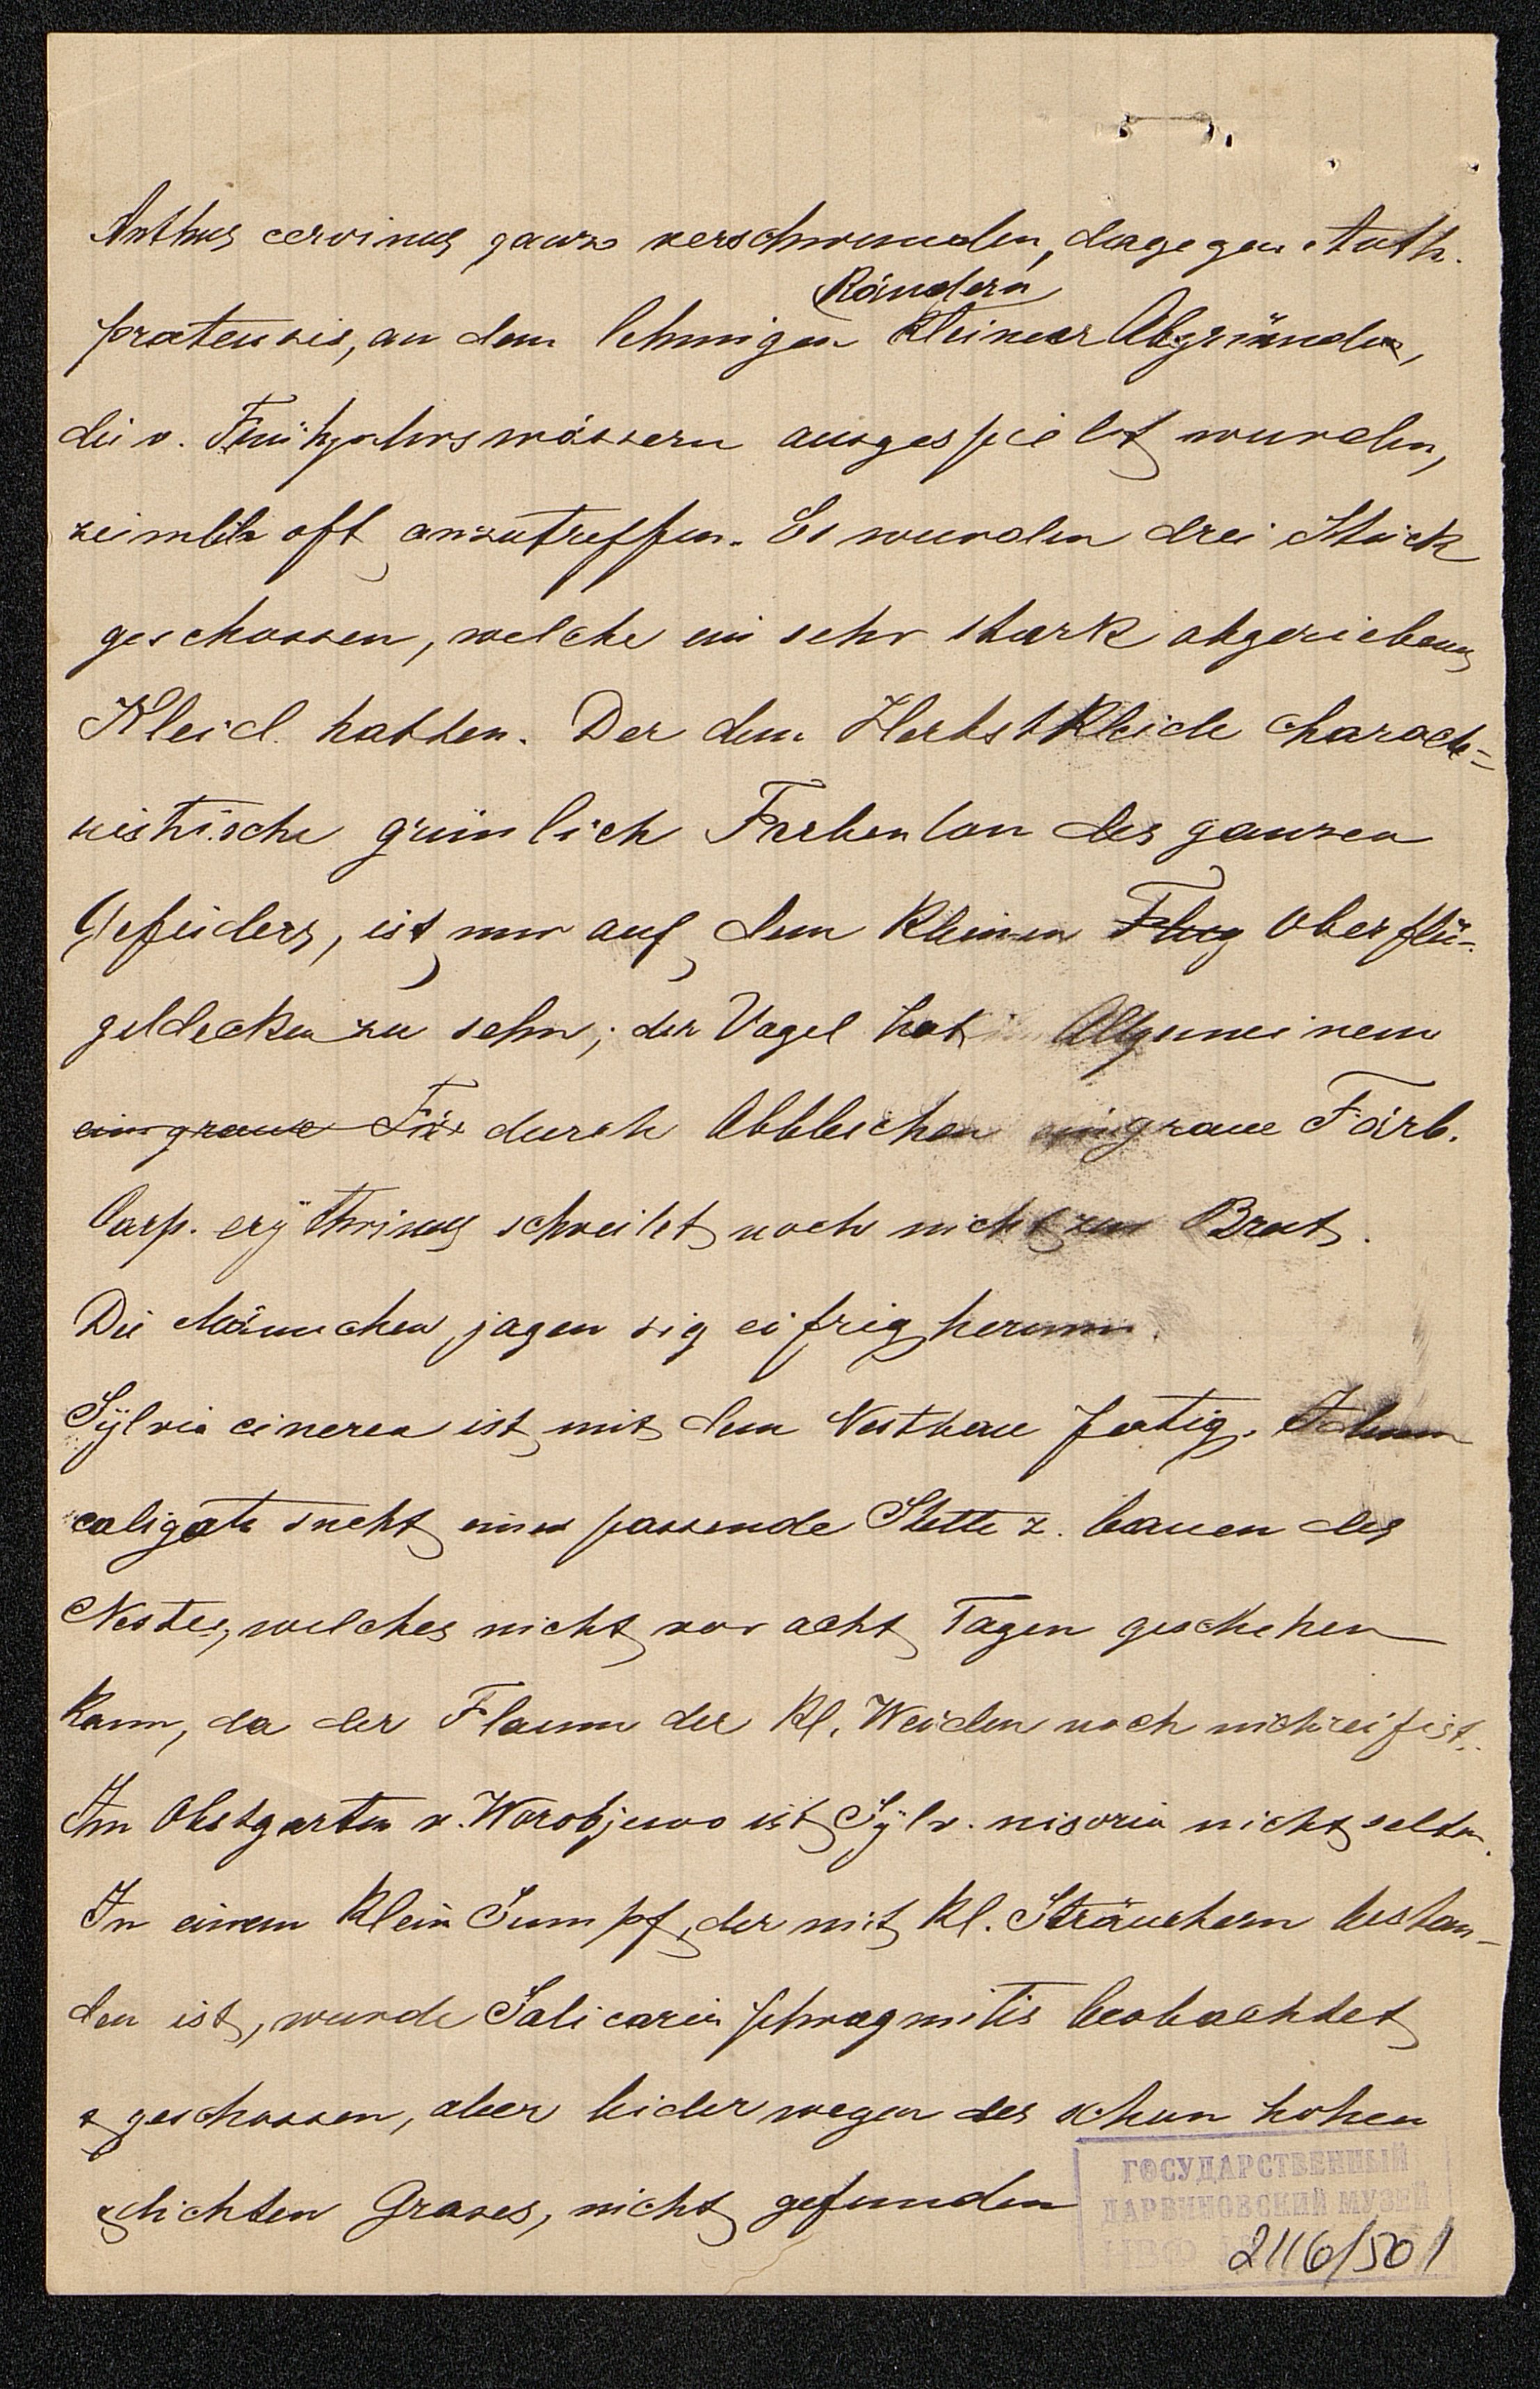 Anthus cervinus ganz verschwunden, dagegen Anth.
Rändern
pratensis, an den lehmigen kleiner Abgründe,
die v. Frühjahrswässern ausgespielt wurden,
zeimlich oft anzutreffen. Es wurden drei Stück
geschossen, welche ein sehr stark abgeriebenes
Kleid hatten. Der dem Herbstkleide charack=
ristische grünlich Farbenton des ganzen
Gefieders, ist nur auf den kleinen Flug Oberflü-
geldecken zu sehn; der Vogel hat Allgemeinem
ein graue Fär durch Abbleichen ein graue Färb.
Carp. erÿthrinus schreitet noch nicht zur Brut.
Die Männchen jagen sig eifrig herum.
Sÿlvia cinerea ist mit dem Nestbau fertig.
caligata sucht eine passende Stelle z. bauen des
Nestes, welches nicht vor acht Tagen geschehen
kann, da der Flaum der kl. Weiden noch nicht reif ist.
Im Obstgarten v. Worobjewo ist Sÿlv. nisoria nicht selten.
In einem klein Sumpf, der mit kl. Sträuchern bestan-
den ist, wurde Salicaria phragmitis beobachtet
& geschossen, aber leider wegen des schon hohen
& dichten Grases, nicht gefunden
ГОСУДАРСТВЕННЫЙ
ДАРВИНОВСКИЙ МУЗЕЙ
2116/501